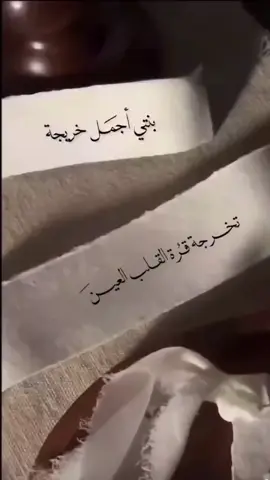 بنتي أجمَل خريجة
تخرجة قرُة القلب العينَ